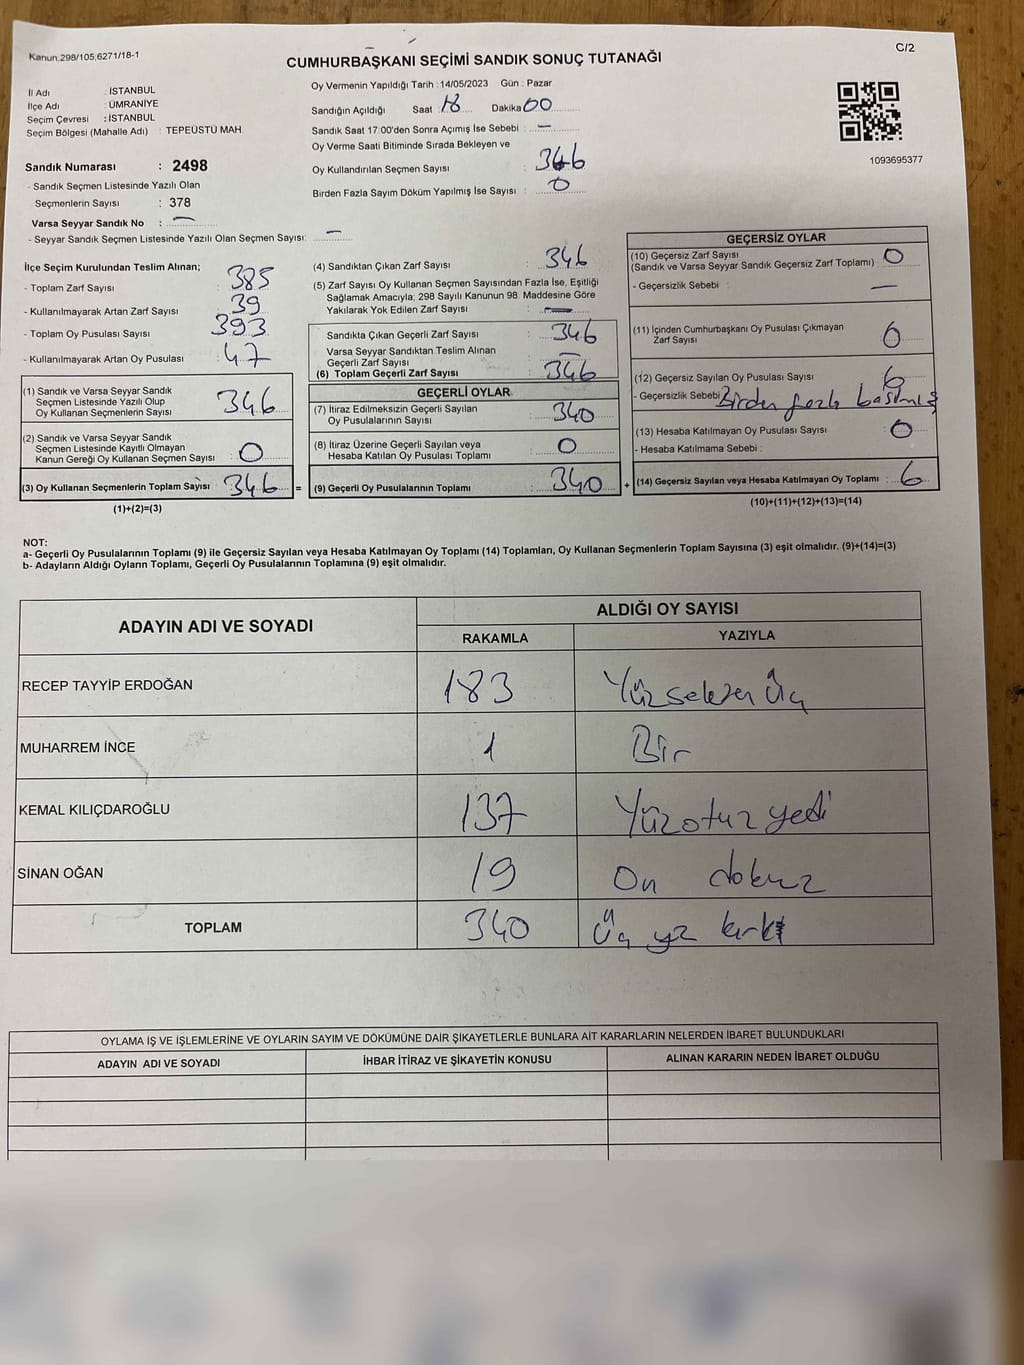 Kanun:298/105;6271/18-1
C/2
CUMHURBAŞKANI SEÇİMİ SANDIK SONUÇ TUTANAĞI
İl Adı : İSTANBUL
İlçe Adı : ÜMRANİYE
Seçim Çevresi : İSTANBUL
Seçim Bölgesi (Mahalle Adı) : TEPEÜSTÜ MAH.
Sandık Numarası : 2498
- Sandık Seçmen Listesinde Yazılı Olan
Seçmenlerin Sayısı : 378
Varsa Seyyar Sandık No : —
- Seyyar Sandık Seçmen Listesinde Yazılı Olan Seçmen Sayısı: —
Oy Vermenin Yapıldığı Tarih : 14/05/2023 Gün : Pazar
Sandığın Açıldığı Saat 18 Dakika 00
Sandık Saat 17:00'den Sonra Açımış İse Sebebi : —
Oy Verme Saati Bitiminde Sırada Bekleyen ve
Oy Kullandırılan Seçmen Sayısı : 346
Birden Fazla Sayım Döküm Yapılmış İse Sayısı : 0
1093695377
İlçe Seçim Kurulundan Teslim Alınan;
- Toplam Zarf Sayısı : 385
- Kullanılmayarak Artan Zarf Sayısı : 39
- Toplam Oy Pusulası Sayısı : 393
- Kullanılmayarak Artan Oy Pusulası : 47
(1) Sandık ve Varsa Seyyar Sandık
Seçmen Listesinde Yazılı Olup
Oy Kullanan Seçmenlerin Sayısı : 346
(2) Sandık ve Varsa Seyyar Sandık
Seçmen Listesinde Kayıtlı Olmayan
Kanun Gereği Oy Kullanan Seçmen Sayısı : 0
(3) Oy Kullanan Seçmenlerin Toplam Sayısı : 346 =
(1)+(2)=(3)
(4) Sandıktan Çıkan Zarf Sayısı : 346
(5) Zarf Sayısı Oy Kullanan Seçmen Sayısından Fazla İse, Eşitliği
Sağlamak Amacıyla; 298 Sayılı Kanunun 98. Maddesine Göre
Yakılarak Yok Edilen Zarf Sayısı : —
Sandıkta Çıkan Geçerli Zarf Sayısı : 346
Varsa Seyyar Sandıktan Teslim Alınan
Geçerli Zarf Sayısı : —
(6) Toplam Geçerli Zarf Sayısı : 346
GEÇERLİ OYLAR
(7) İtiraz Edilmeksizin Geçerli Sayılan
Oy Pusulalarının Sayısı : 340
(8) İtiraz Üzerine Geçerli Sayılan veya
Hesaba Katılan Oy Pusulası Toplamı : 0
(9) Geçerli Oy Pusulalarının Toplamı : 340 +
GEÇERSİZ OYLAR
(10) Geçersiz Zarf Sayısı
(Sandık ve Varsa Seyyar Sandık Geçersiz Zarf Toplamı) : 0
- Geçersizlik Sebebi : —
(11) İçinden Cumhurbaşkanı Oy Pusulası Çıkmayan
Zarf Sayısı : 0
(12) Geçersiz Sayılan Oy Pusulası Sayısı : 6
- Geçersizlik Sebebi : Birden fazla basılmış
(13) Hesaba Katılmayan Oy Pusulası Sayısı : 0
- Hesaba Katılmama Sebebi :
(14) Geçersiz Sayılan veya Hesaba Katılmayan Oy Toplamı : 6
(10)+(11)+(12)+(13)=(14)
NOT:
a- Geçerli Oy Pusulalarının Toplamı (9) ile Geçersiz Sayılan veya Hesaba Katılmayan Oy Toplamı (14) Toplamları, Oy Kullanan Seçmenlerin Toplam Sayısına (3) eşit olmalıdır. (9)+(14)=(3)
b- Adayların Aldığı Oyların Toplamı, Geçerli Oy Pusulalarının Toplamına (9) eşit olmalıdır.
ADAYIN ADI VE SOYADI
ALDIĞI OY SAYISI
RAKAMLA YAZIYLA
RECEP TAYYİP ERDOĞAN 183 Yüzseksen Üç
MUHARREM İNCE 1 Bir
KEMAL KILIÇDAROĞLU 137 Yüzotuz yedi
SİNAN OĞAN 19 On dokuz
TOPLAM 340 Üç yz kırk
OYLAMA İŞ VE İŞLEMLERİNE VE OYLARIN SAYIM VE DÖKÜMÜNE DAİR ŞİKAYETLERLE BUNLARA AİT KARARLARIN NELERDEN İBARET BULUNDUKLARI
ADAYIN ADI VE SOYADI İHBAR İTİRAZ VE ŞİKAYETİN KONUSU ALINAN KARARIN NEDEN İBARET OLDUĞU